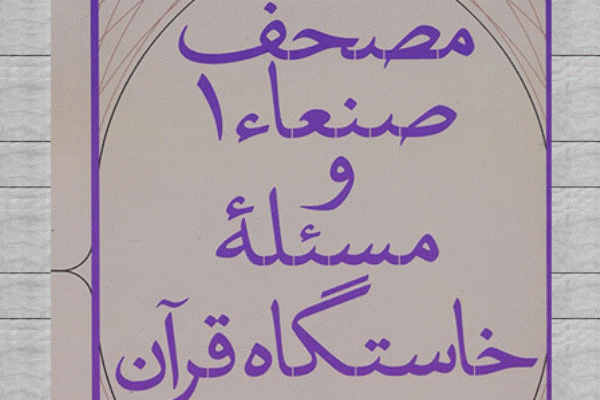 مصحف
صنعاء ۱
و
مسئلهٔ
خاستگاه قرآن